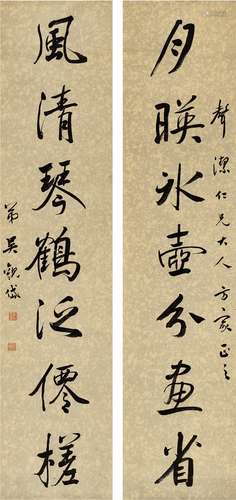 月暎冰壺分畫省
聲潔仁兄大人方家正之
風清琴鶴泛僊槎
弟吳觀岱